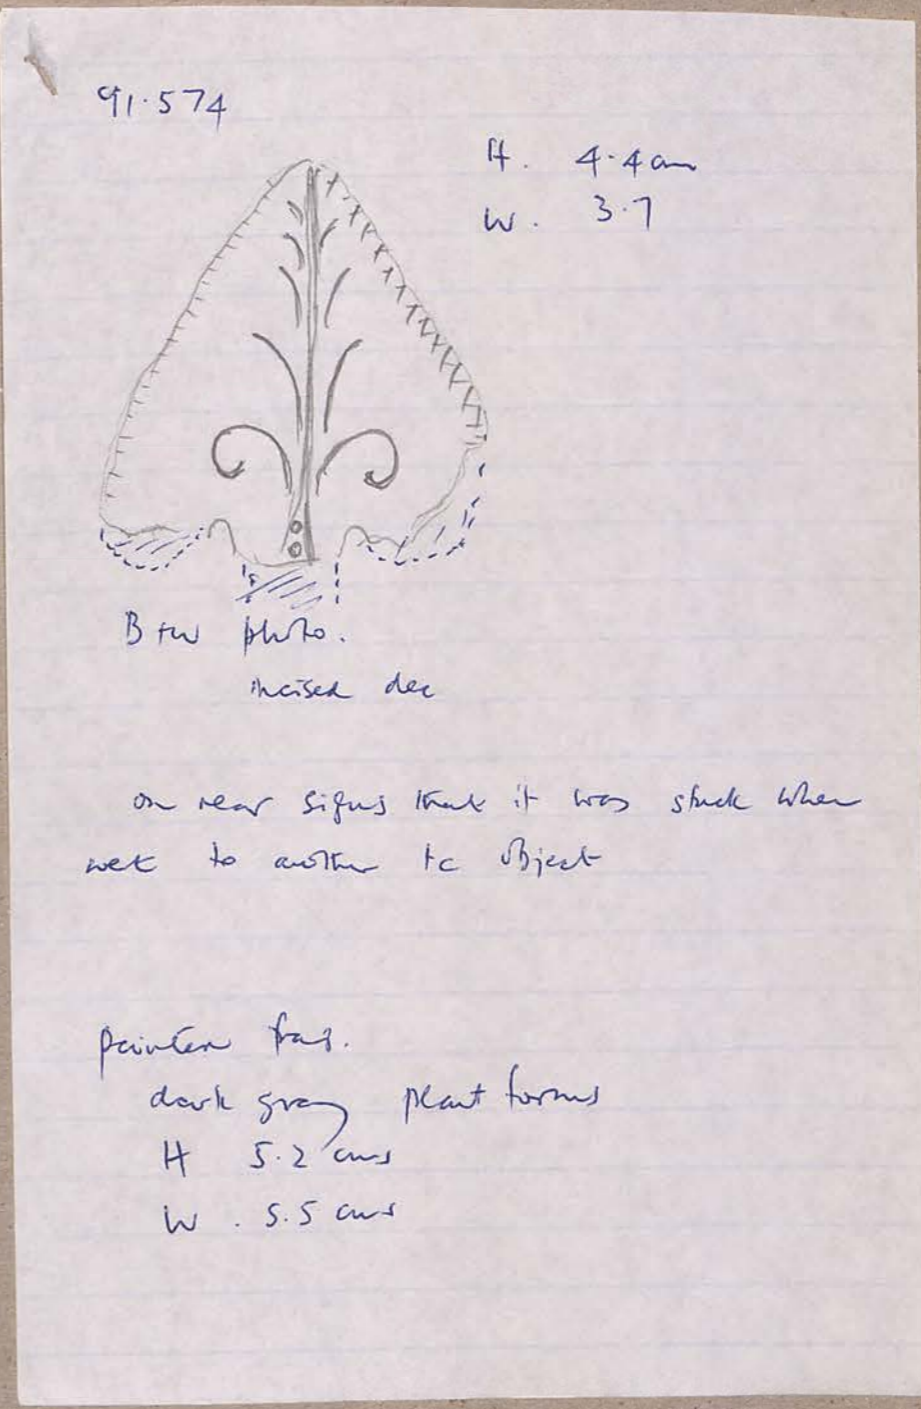 91.574
H. 4.4 cm
W. 3.7
B + w photo.
incised dec
on rear signs that it was stuck when
wet to another tc object
painted frag.
dark gray plant forms
H 5.2 cms
W. 5.5 cms